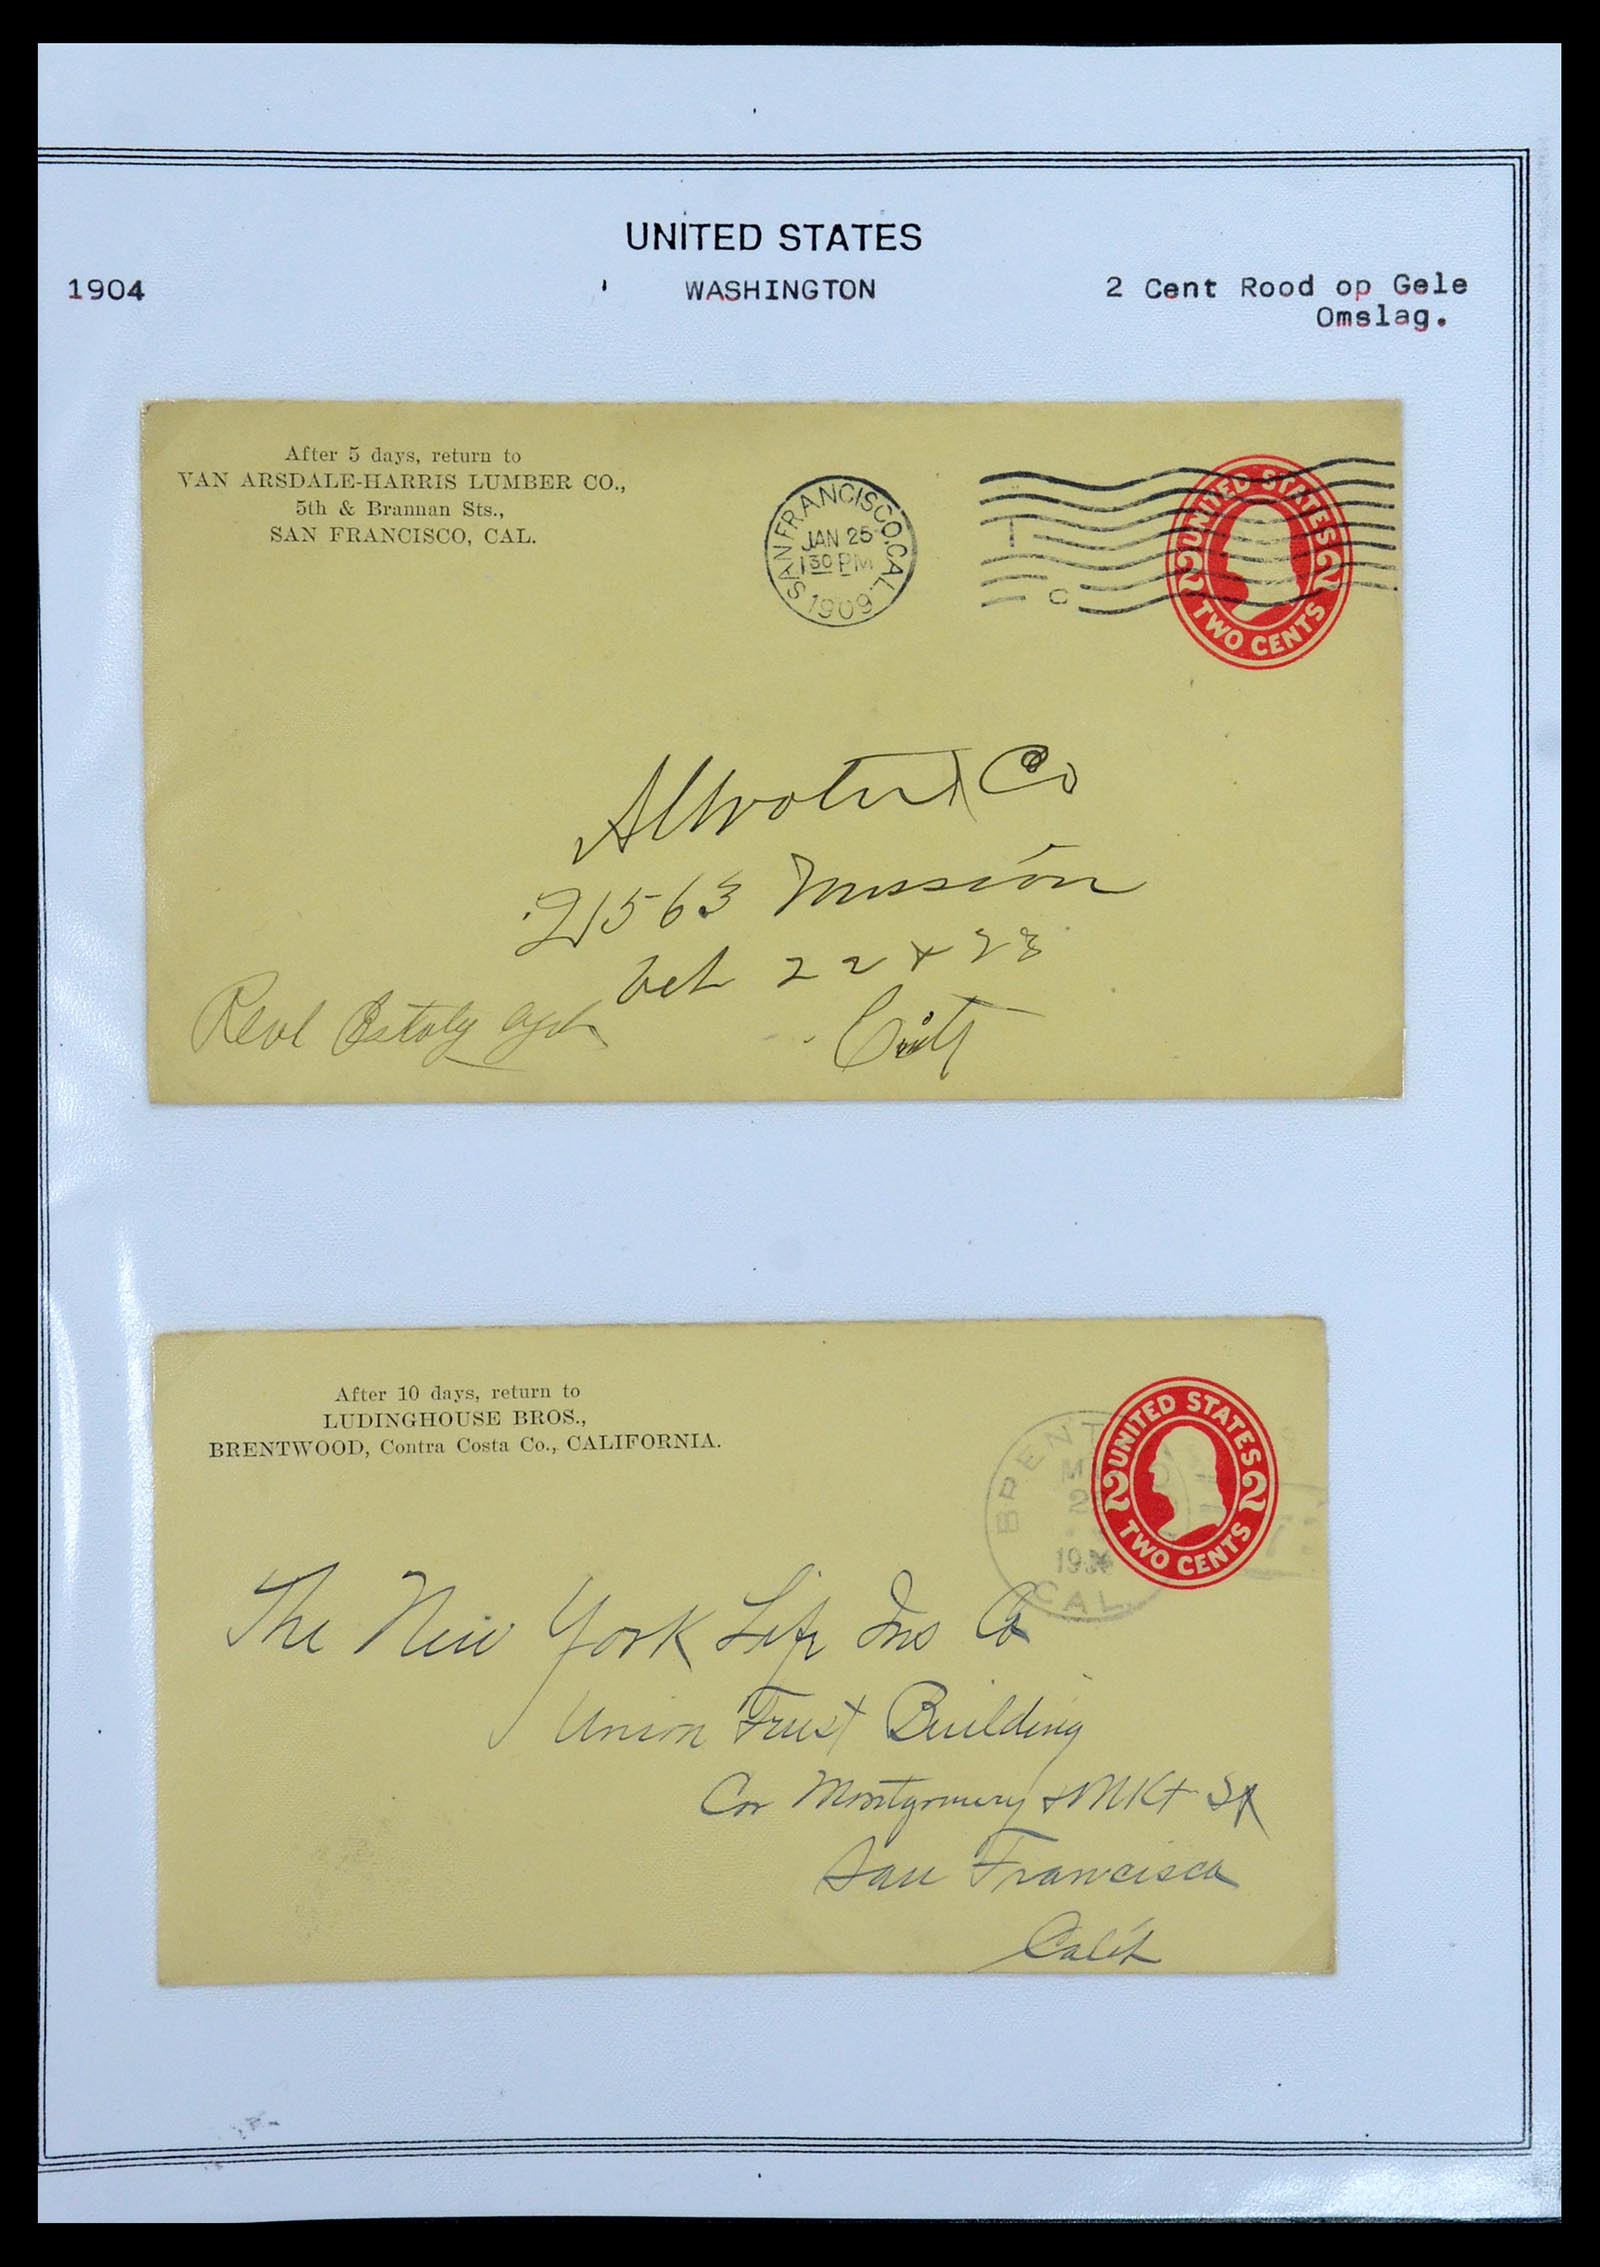 UNITED STATES
1904 WASHINGTON 2 Cent Rood op Gele
Omslag.
After 5 days, return to
VAN ARSDALE-HARRIS LUMBER CO.,
5th & Brannan Sts.,
SAN FRANCISCO, CAL.
SAN FRANCISCO, CAL.
JAN 25
1 30 PM
1909
UNITED STATES
2 2
TWO CENTS
Atwater Co
2563 Mission
bet 22 & 23
City
Real Estate
After 10 days, return to
LUDINGHOUSE BROS.,
BRENTWOOD, Contra Costa Co., CALIFORNIA.
CAL.
UNITED STATES
2 2
TWO CENTS
The New York Life Ins Co
Union Trust Building
Cor Montgomery & MKt St
San Francisco
Calif